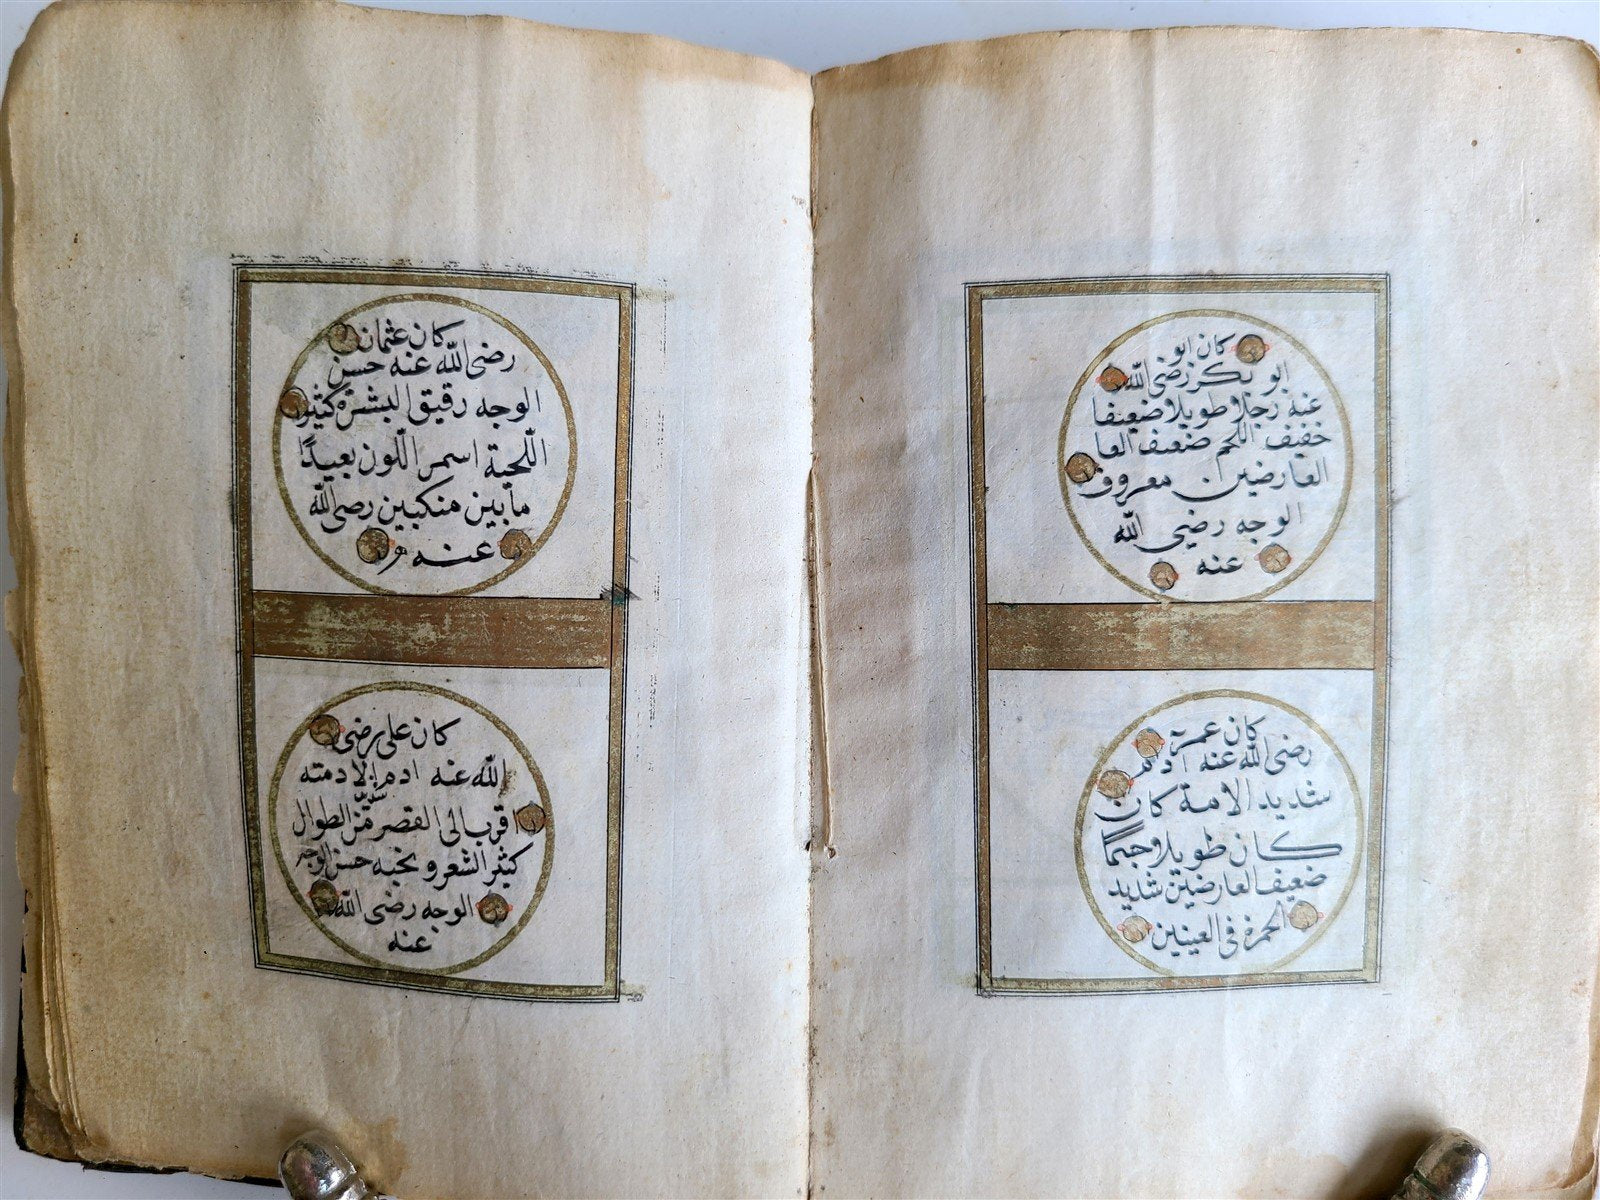 كان ابو
ابو بكر رضى الله
عنه رجلا طويلا ضعيفا
خفيف اللحم ضعيف العا
العارضين معروف
الوجه رضي الله
عنه
كان عمر
رضى الله عنه آدم
شديد الامة كان
كان طويلا وجيها
ضعيف العارضين شديد
الحمرة فى العينين
كان عثمان
رضى الله عنه حسن
الوجه رقيق البشرة كثير
اللحية اسمر اللون بعيدًا
مابين منكبين رضى الله
عنه
كان على رضى
الله عنه ادم الادمته
اقرب الى القصر من الطوال
كثير الشعر و حسن الوجه
الوجه رضى الله
عنه